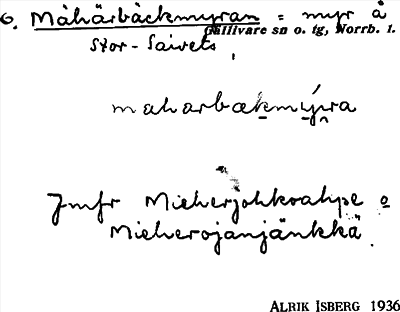 6. Måhärbäckmyran = myr å
Gällivare sn o. tg, Norrb. l.
Stor-Saivets
maharbækmýra
Jmfr Mieherjohkoahpe o
Mieherojanjänkkä.
ALRIK ISBERG 1936